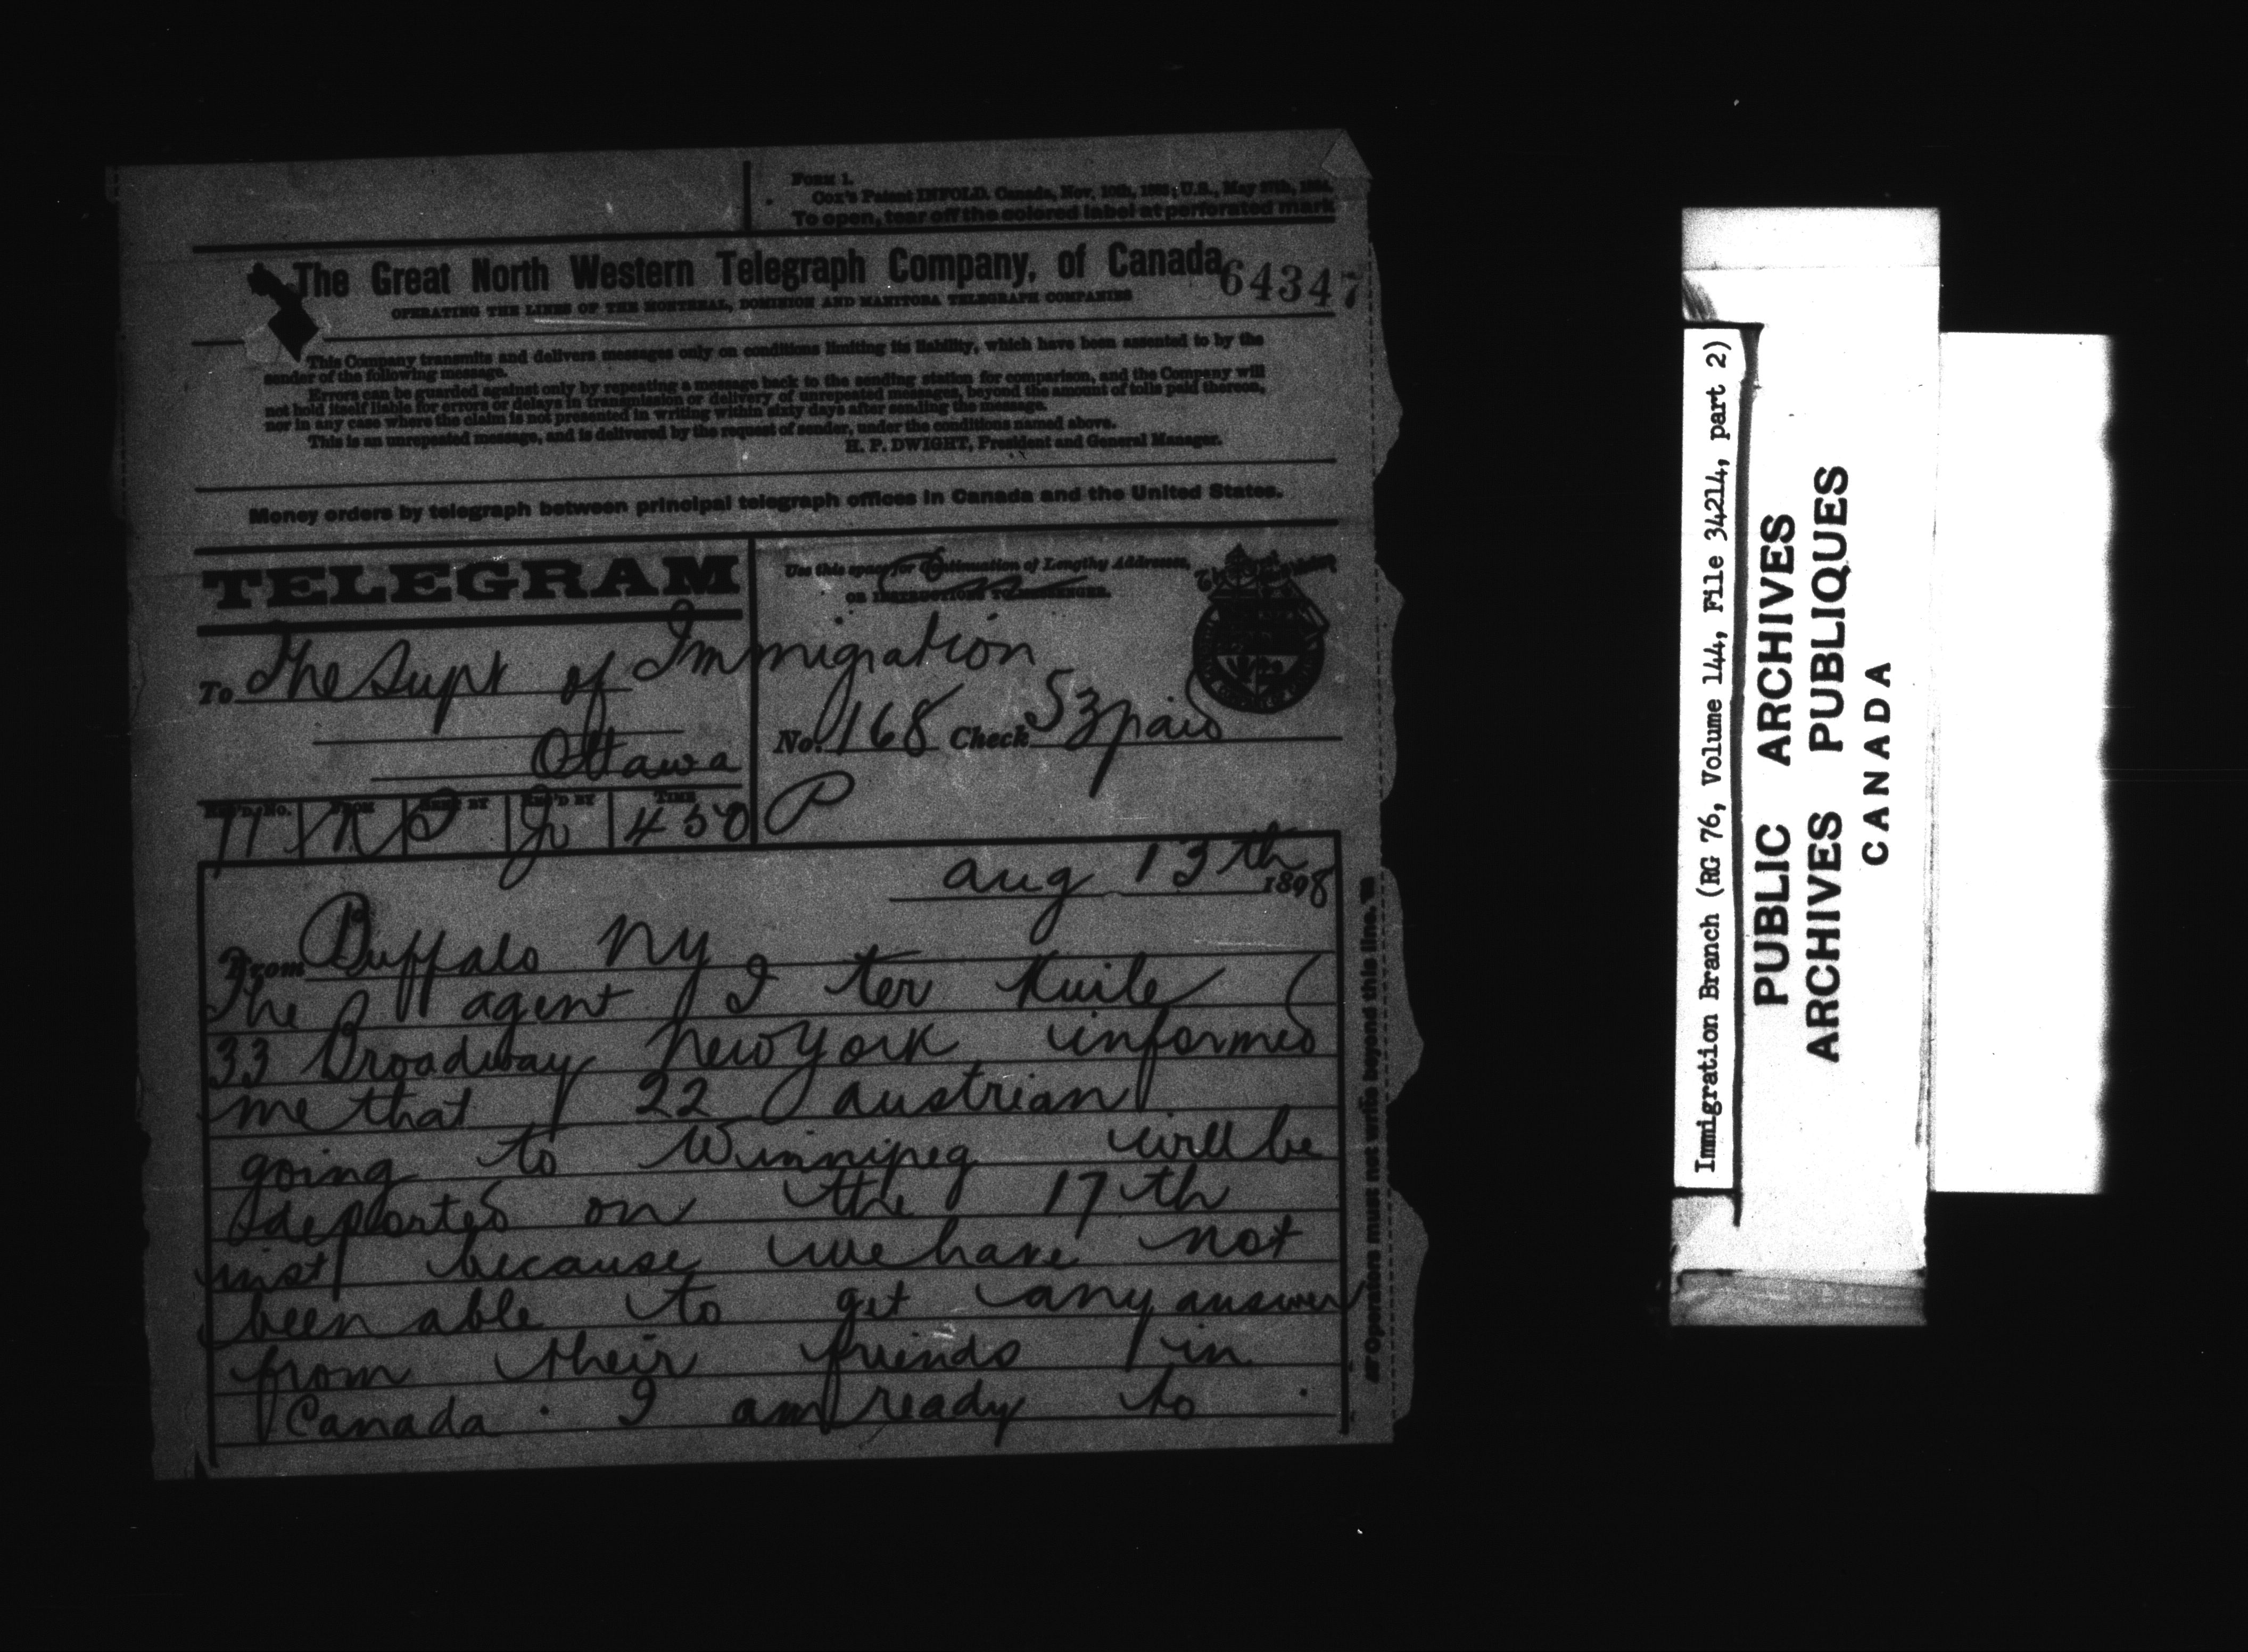 FORM 1.
Cox's Patent INFOLD. Canada, Nov. 10th, U.S., May 27th,
To open, tear off the colored label at perforated mark
The Great North Western Telegraph Company, of Canada
64347
OPERATING THE LINES OF THE MONTREAL, DOMINION AND MANITOBA TELEGRAPH COMPANIES
This Company transmits and delivers messages only on conditions limiting its liability, which have been assented to by the
sender of the following message.
Errors can be guarded against only by repeating a message back to the sending station for comparison, and the Company will
not hold itself liable for errors or delays in transmission or delivery of unrepeated messages, beyond the amount of tolls paid thereon,
nor in any case where the claim is not presented in writing within sixty days after sending the message.
This is an unrepeated message, and is delivered by the request of sender, under the conditions named above.
H. P. DWIGHT, President and General Manager.
Money orders by telegraph between principal telegraph offices in Canada and the United States.
TELEGRAM
Use this space for Continuation of Lengthy Addresses,
OR INSTRUCTIONS TO MESSENGER.
To The Supt of Immigration
Ottawa
No. 168 Check 53 paid
P
REC'D NO. FROM SENT BY REC'D BY TIME
Aug 13th 1898
From Buffalo NY
The agent I ter Kuile
33 Broadway New York informed
me that 22 austrian
going to Winnipeg will be
deported on the 17th
inst because we have not
been able to get any answer
from their friends in
Canada . I am ready to
Operators must not write beyond this line.
Immigration Branch (RG 76, Volume 144, File 34214, part 2)
PUBLIC ARCHIVES
ARCHIVES PUBLIQUES
CANADA